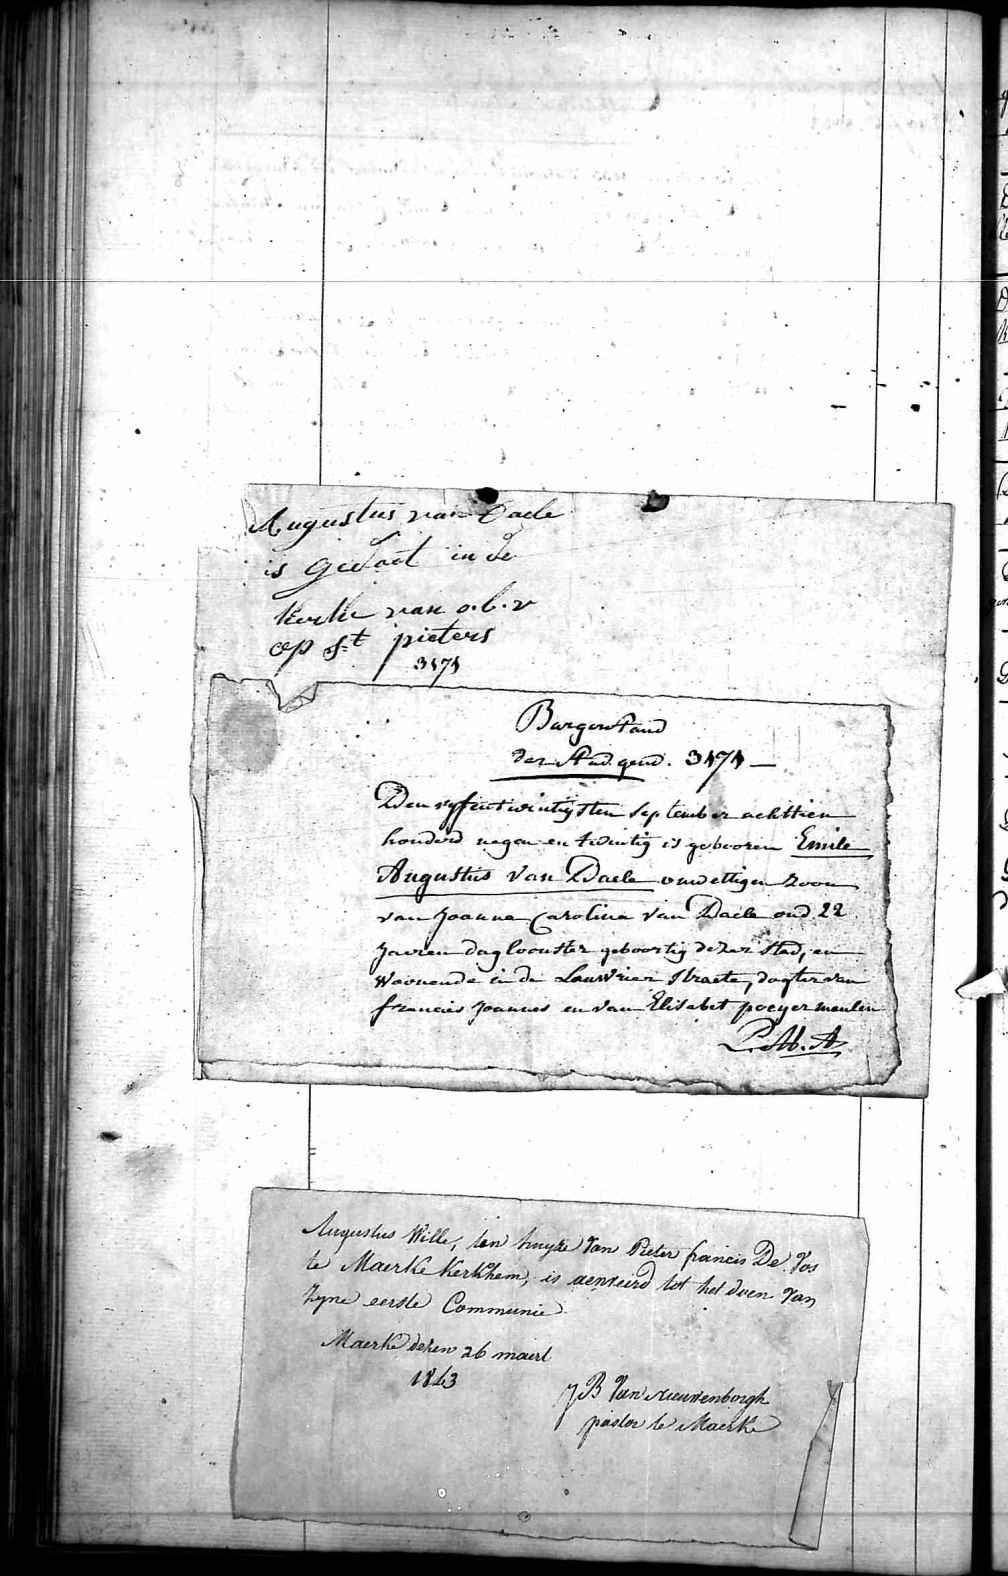 Augustus van Daele
is gedoot in de
kerke van o.l.v
op St pieters
3171
Burgerstand
der Stad gend. 3171 —
Den vyfentwintigsten september achttien
honderd negen en twintig is gebooren Emile
Augustus Van Daele onwettigen zoon
van Joanna Carolina Van Daele oud 22
Jaeren dagloonster geboortig dezer stad, en
Woonende in de Lauwrier straete, dogter van
francies Joannes en van Elisabet poeyermeulen
Augustus Wille, ten huyze van Pieter francis De Vos
te Maerke Kerkhem, is aenveird tot het doen van
Zyne eerste Communie
Maerke dezen 26 maert
1843
J B Van nieuwenborgh
pastor te Maerke